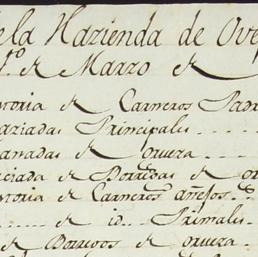 de la Hazienda de Ove
1.º de Marzo de
toria de Carneros Padr
ariadas Principales
arradas de orueza
ciada de Borregas de or
toria de Carneros añejos
de id. Primales
de Borregos de orueza